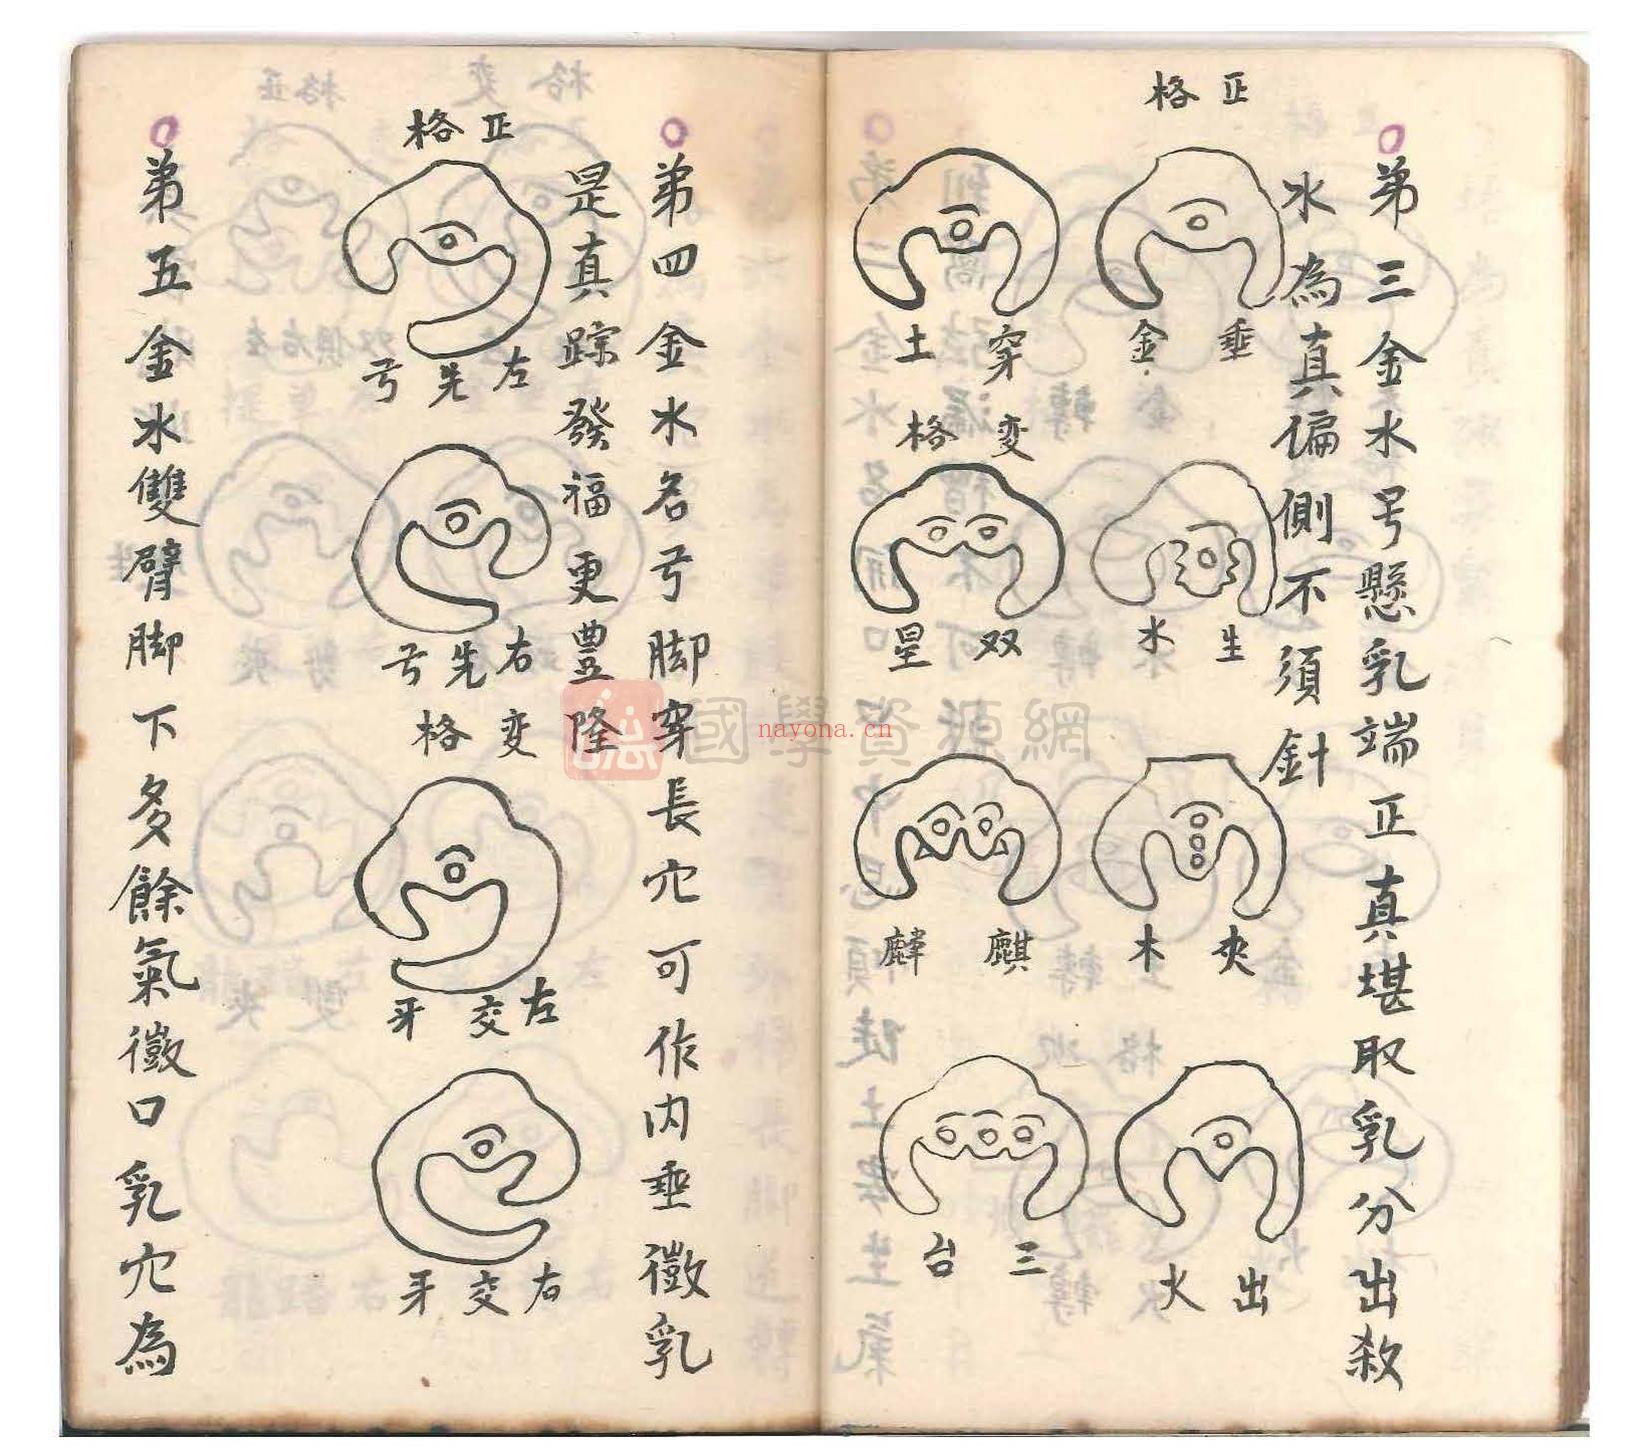 弟三金水号懸乳端正真堪取乳分出殺
水為真偏側不須針
正格
垂金
穿土
変格
生水
双星
夾木
麒麟
出火
三台
弟四金水名弓脚穿長穴可作内垂徵乳
是真踪發福更豊隆
正格
左先弓
右先弓
変格
左交牙
右交牙
弟五金水雙臂脚下多餘氣徵口乳穴為
國學資源網
nayona.cn